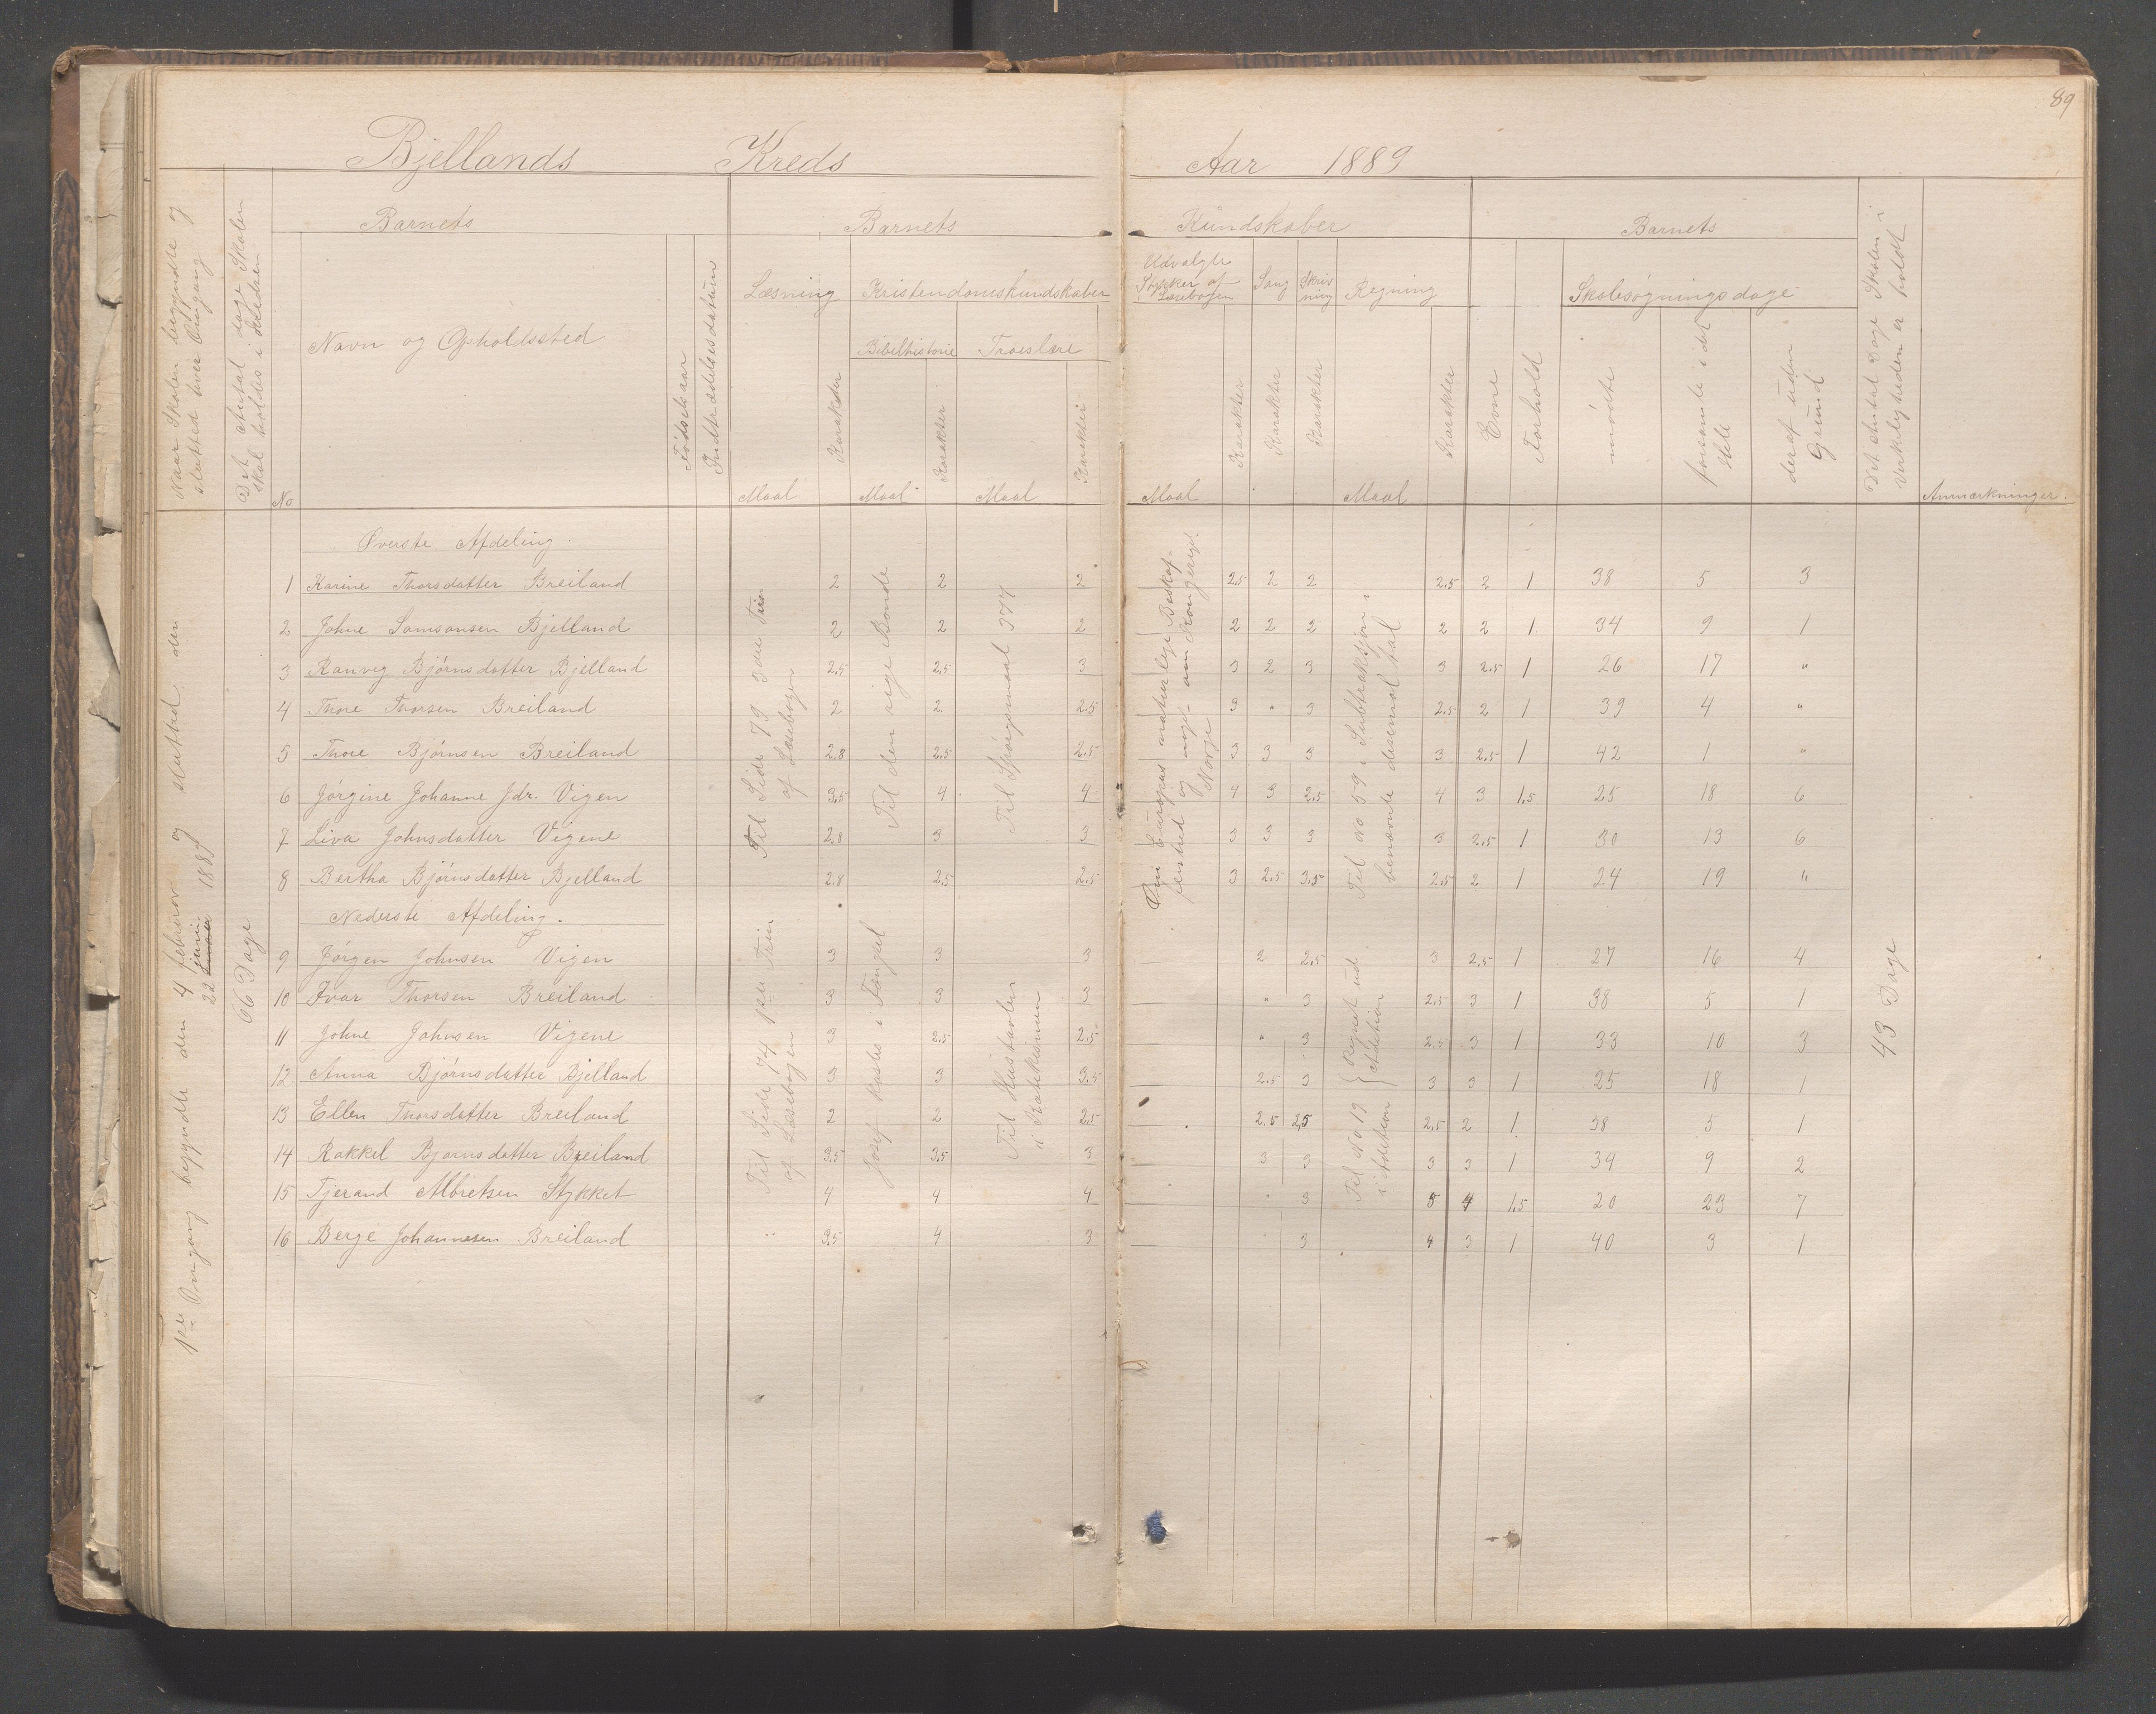 89
Bjellands Kreds Aar 1889
Naar Skolen begyndte og slutted hver Omgang
Det Antal dage Skolen skal holdes i Kredsen
Barnets Barnets Kundskaber Barnets
No Navn og Opholdssted
Fødselsaar
Indtrædelsesdatum
Læsning Kristendomskundskaber
Bibelhistorie Troeslære
Maal Karakter Maal Karakter Maal Karakter
Udvalgte Stykker af Læsebogen Sang Skrivning Regning
Maal Karakter Karakter Karakter Maal Karakter
Evne
Forhold
Skolesøgningsdage
mødte
forsømte i det hele
deraf uden Grund
Det Antal Dage Skolen i Virkeligheden er holdt
Anmærkninger.
1ste Omgang begyndte den 4 februar og slutted den 22 juni 1889
66 Dage
Øverste Afdeling.
1 Karine Thorsdatter Breiland 2 2 2 2.5 2 2 2.5 2 1 38 5 3
2 Johne Samsonsen Bjelland 2 2 2 2 2 2 2 2 1 34 9 1
3 Ranveg Bjørnsdatter Bjelland 2.5 2.5 3 3 2 3 3 2.5 1 26 17 "
4 Thore Thorsen Breiland 2 2. 2.5 3 " 3 2.5 2 1 39 4 "
5 Thore Bjørnsen Breiland 2.8 2.5 2.5 3 3 3 3 2.5 1 42 1 "
6 Jørgine Johanne Jdr. Vigen 3.5 4 4 4 3 2.5 4 3 1.5 25 18 6
7 Liva Johnsdatter Vigene 2.8 3 3 3 3 3 3 2.5 1 30 13 6
8 Bertha Bjørnsdatter Bjelland 2.8 2.5 2.5 3 2.5 3.5 2.5 2 1 24 19 "
Til Side 79 3die Trin af Læsebogen
Til den rige Bonde
Til Spørgsmaal 377
Om Europas naturlige Beskaffenhed og noget om Kongeriget Norge
Til No 59 i Subtraksjon i benævnte desimal tal
Nederste Afdeling.
9 Jørgen Johnsen Vigen 3 3 3 2 2.5 3 2.5 1 27 16 4
10 Ivar Thorsen Breiland 3 3 3 " 3 2.5 3 1 38 5 1
11 Johne Johnsen Vigene 3 2.5 2.5 " 3 2.5 3 1 33 10 3
12 Anna Bjørnsdatter Bjelland 3 3 3.5 2.5 3 3 3 1 25 18 1
13 Ellen Thorsdatter Breiland 2 2 2.5 2.5 2,5 2.5 2 1 38 5 1
14 Rakkel Bjørnsdatter Breiland 3.5 3.5 3 3 3 3 3 1 34 9 2
15 Tjerand Albretsen Stykket 4 4 4 " 3 5 4 1.5 20 23 7
16 Berge Johannesen Breiland 3.5 4 3 3 4 3 1 40 3 1
Til Side 74 1ste Trin af Læsebogen
Josef kastes i Fængsel
Til Hustavlen i Katekismen
Regnet ud Addition
Til No 19 i Addition
43 Dage